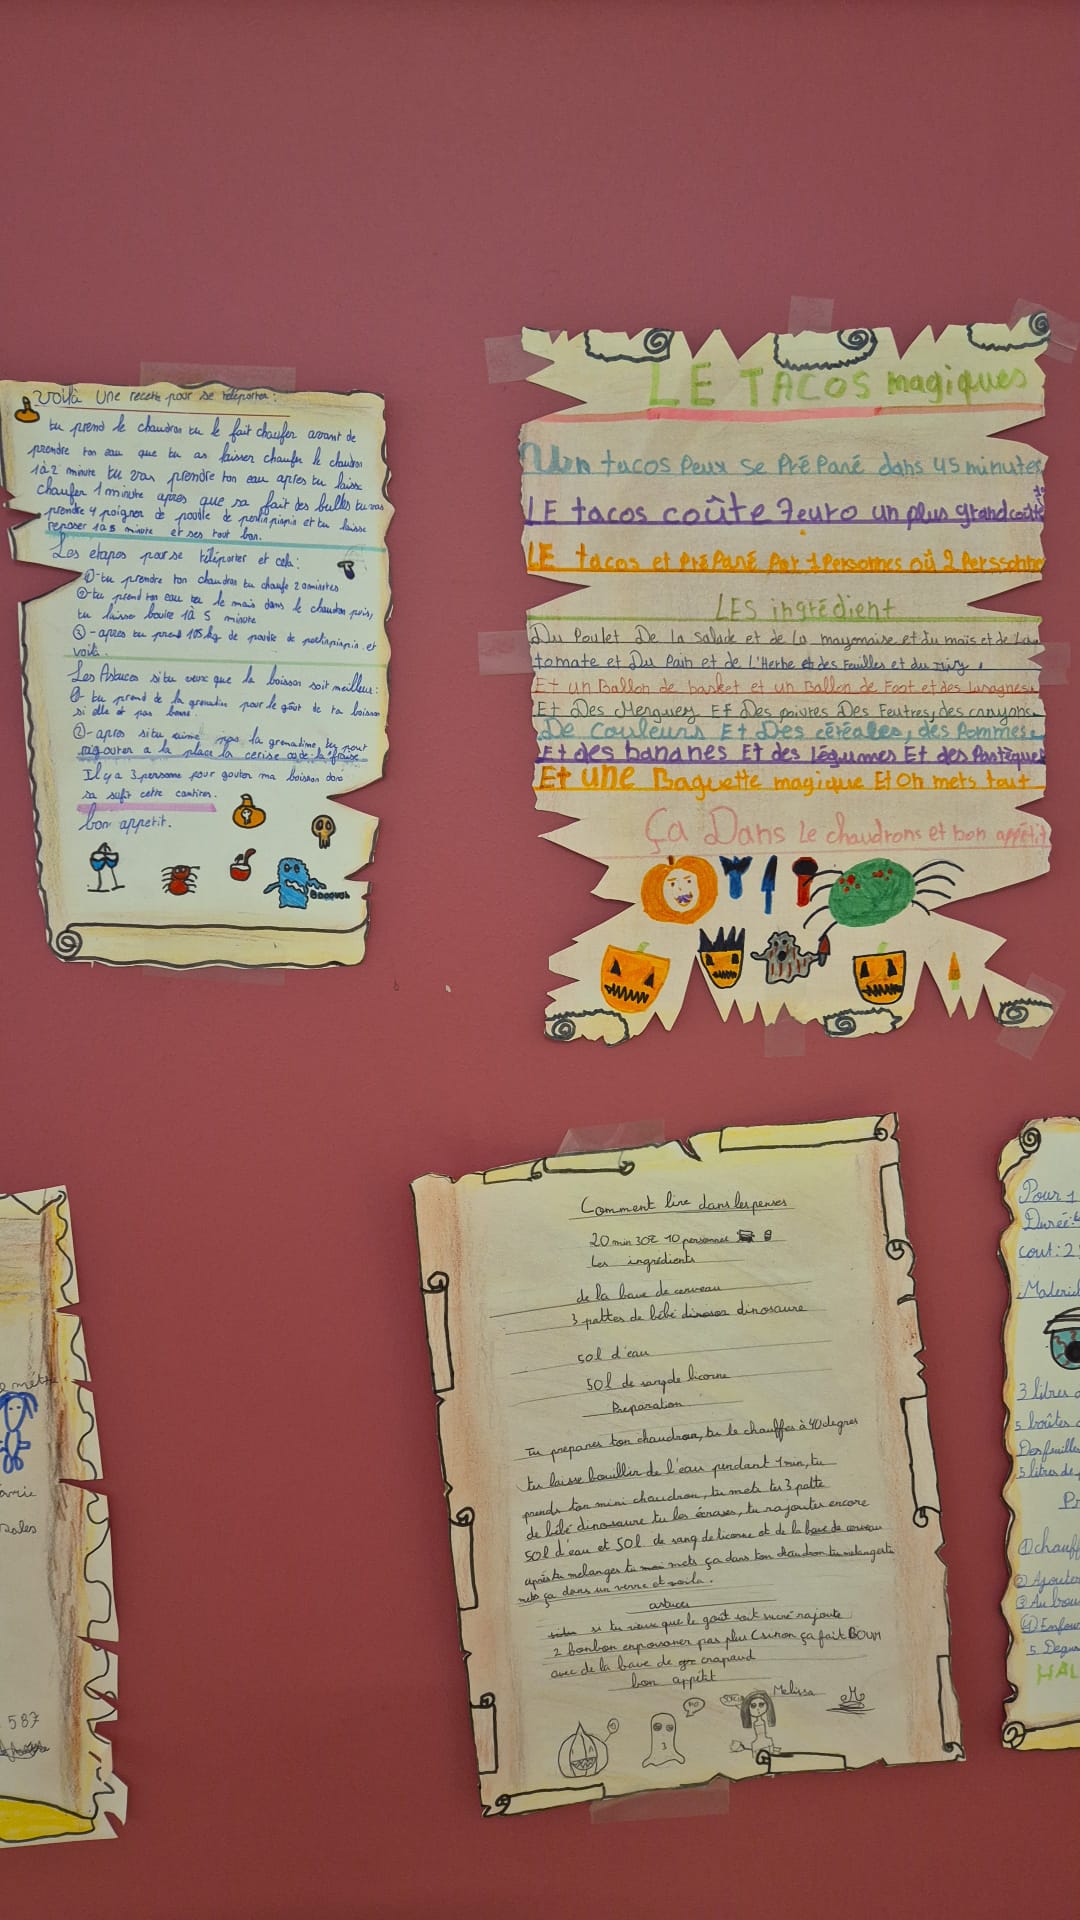 Voilà Une recette pour se téléporter:
tu prend le chaudron tu le fait chaufer avant de
prendre ton eau que tu as laisser chaufer le chaudron
1à2 minute tu vas prendre ton eau apres tu laisse
chaufer 1 minute apres que sa fait des bulles tu vas
prendre 4 poigner de poudre de perlinpinpin et tu laisse
reposer 1à5 minute et ses tout bon.
Les etapes pour se téléporter et cela:
①-tu prendre ton chaudron tu chaufe 20minutes
②-tu prend ton eau tu le mais dans le chaudron puis,
tu laisse bouire 1à 5 minute
③-apres tu prend 105kg de poudre de perlinpinpin et
voilà.
Les Astuces si tu veux que la boisson soit meilleur:
①- tu prend de la grenadine pour le goût de ta boisson
si elle et pas bonne.
②-apres si tu aime pas la grenadine, tu peut
ragouter a la place la cerise ou de la fraise
Il y a 3 personne pour gouter ma boisson donc
sa sufit cette cantiter.
bon appetit.
LE TACOS magiques
Un tacos Peux se PréPané dans 45 minutes
LE tacos coûte 7euro un plus grand coûte
LE tacos et PréPané Par 1 Personnes où 2 Perssonne
LES ingrédient
Du Poulet De la Salade et de La mayonaise et du maïs et de La
tomate et Du Pain et de L'Herbe et des Feuilles et du
Et un Ballon de basket et un Ballon de Foot et des Lasagnes
Et Des Merguez Et Des poivres Des Feutres, des crayons
De couleurs Et Des céréales, des Pommes
Et des bananes Et des légumes Et des Pastèques
Et une Baguette magique Et On mets tout
Ça Dans Le chaudrons et bon appétit
Comment lire dans les penses
20 min 30€ 10 personnes
Les ingrédients
de la bave de cerveau
3 pattes de bébé dinosaure
50l d'eau
50l de sang de licorne
Preparation
Tu prepares ton chaudron, tu le chauffes à 40 degres
tu laisse bouillir de l'eau pendant 1min, tu
prends ton mini chaudron, tu mets tes 3 patte
de bébé dinosaure tu les écrases, tu rajoutes encore
50l d'eau et 50l de sang de licorne et de la bave de cerveau
après tu melanges tu mets ça dans ton chaudron tu melanges tu
mets ça dans un verre et voila.
astuces
si tu veux que le goût soit sucré rajoute
2 bonbon enpoisoner pas plus (sinon ça fait BOUM
avec de la bave de crapaud
bon appétit
Melissa
M
Pour 1
Durée:
cout: 2
Materiel
3 litres
5 boîtes
Des feuilles
5 litres de
Pr
①chauff
② Ajouter
③ Au bou
④ Enfou
5. Degus
HAL
587